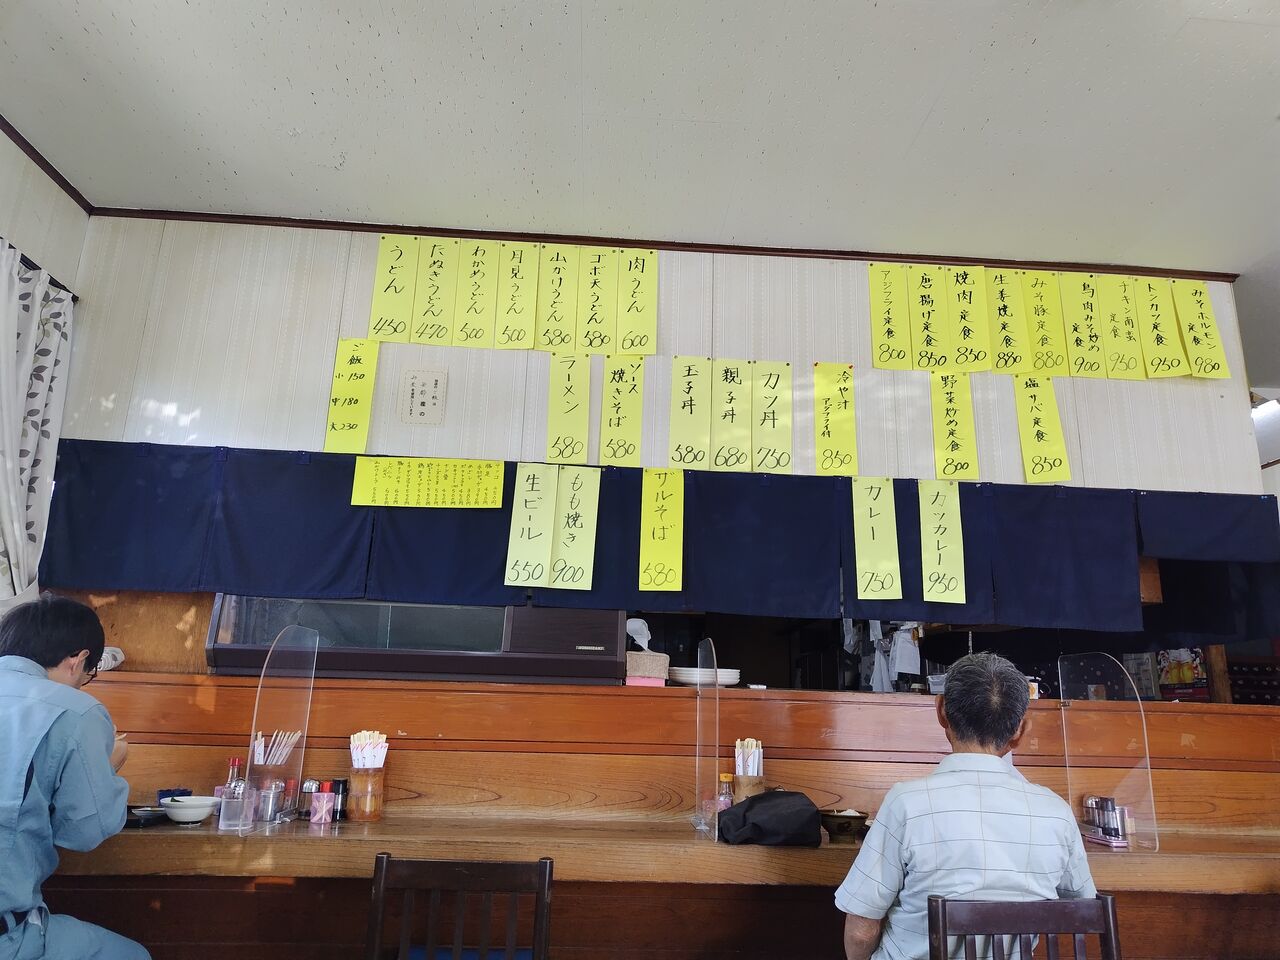 うどん 450
たぬきうどん 470
わかめうどん 500
月見うどん 500
山かけうどん 580
ゴボ天うどん 580
肉うどん 600
アジフライ定食 800
唐揚げ定食 850
焼肉定食 850
生姜焼定食 880
みそ豚定食 880
鳥肉みそ炒め定食 900
チキン南蛮定食 950
トンカツ定食 950
みそホルモン定食 980
ご飯
小 150
中 180
大 230
ラーメン 580
ソース焼きそば 580
玉子丼 580
親子丼 680
カツ丼 750
冷や汁
アジフライ付
850
野菜炒め定食 800
塩サバ定食 850
生ビール 550
もも焼き 900
ザルそば 580
カレー 750
カツカレー 950